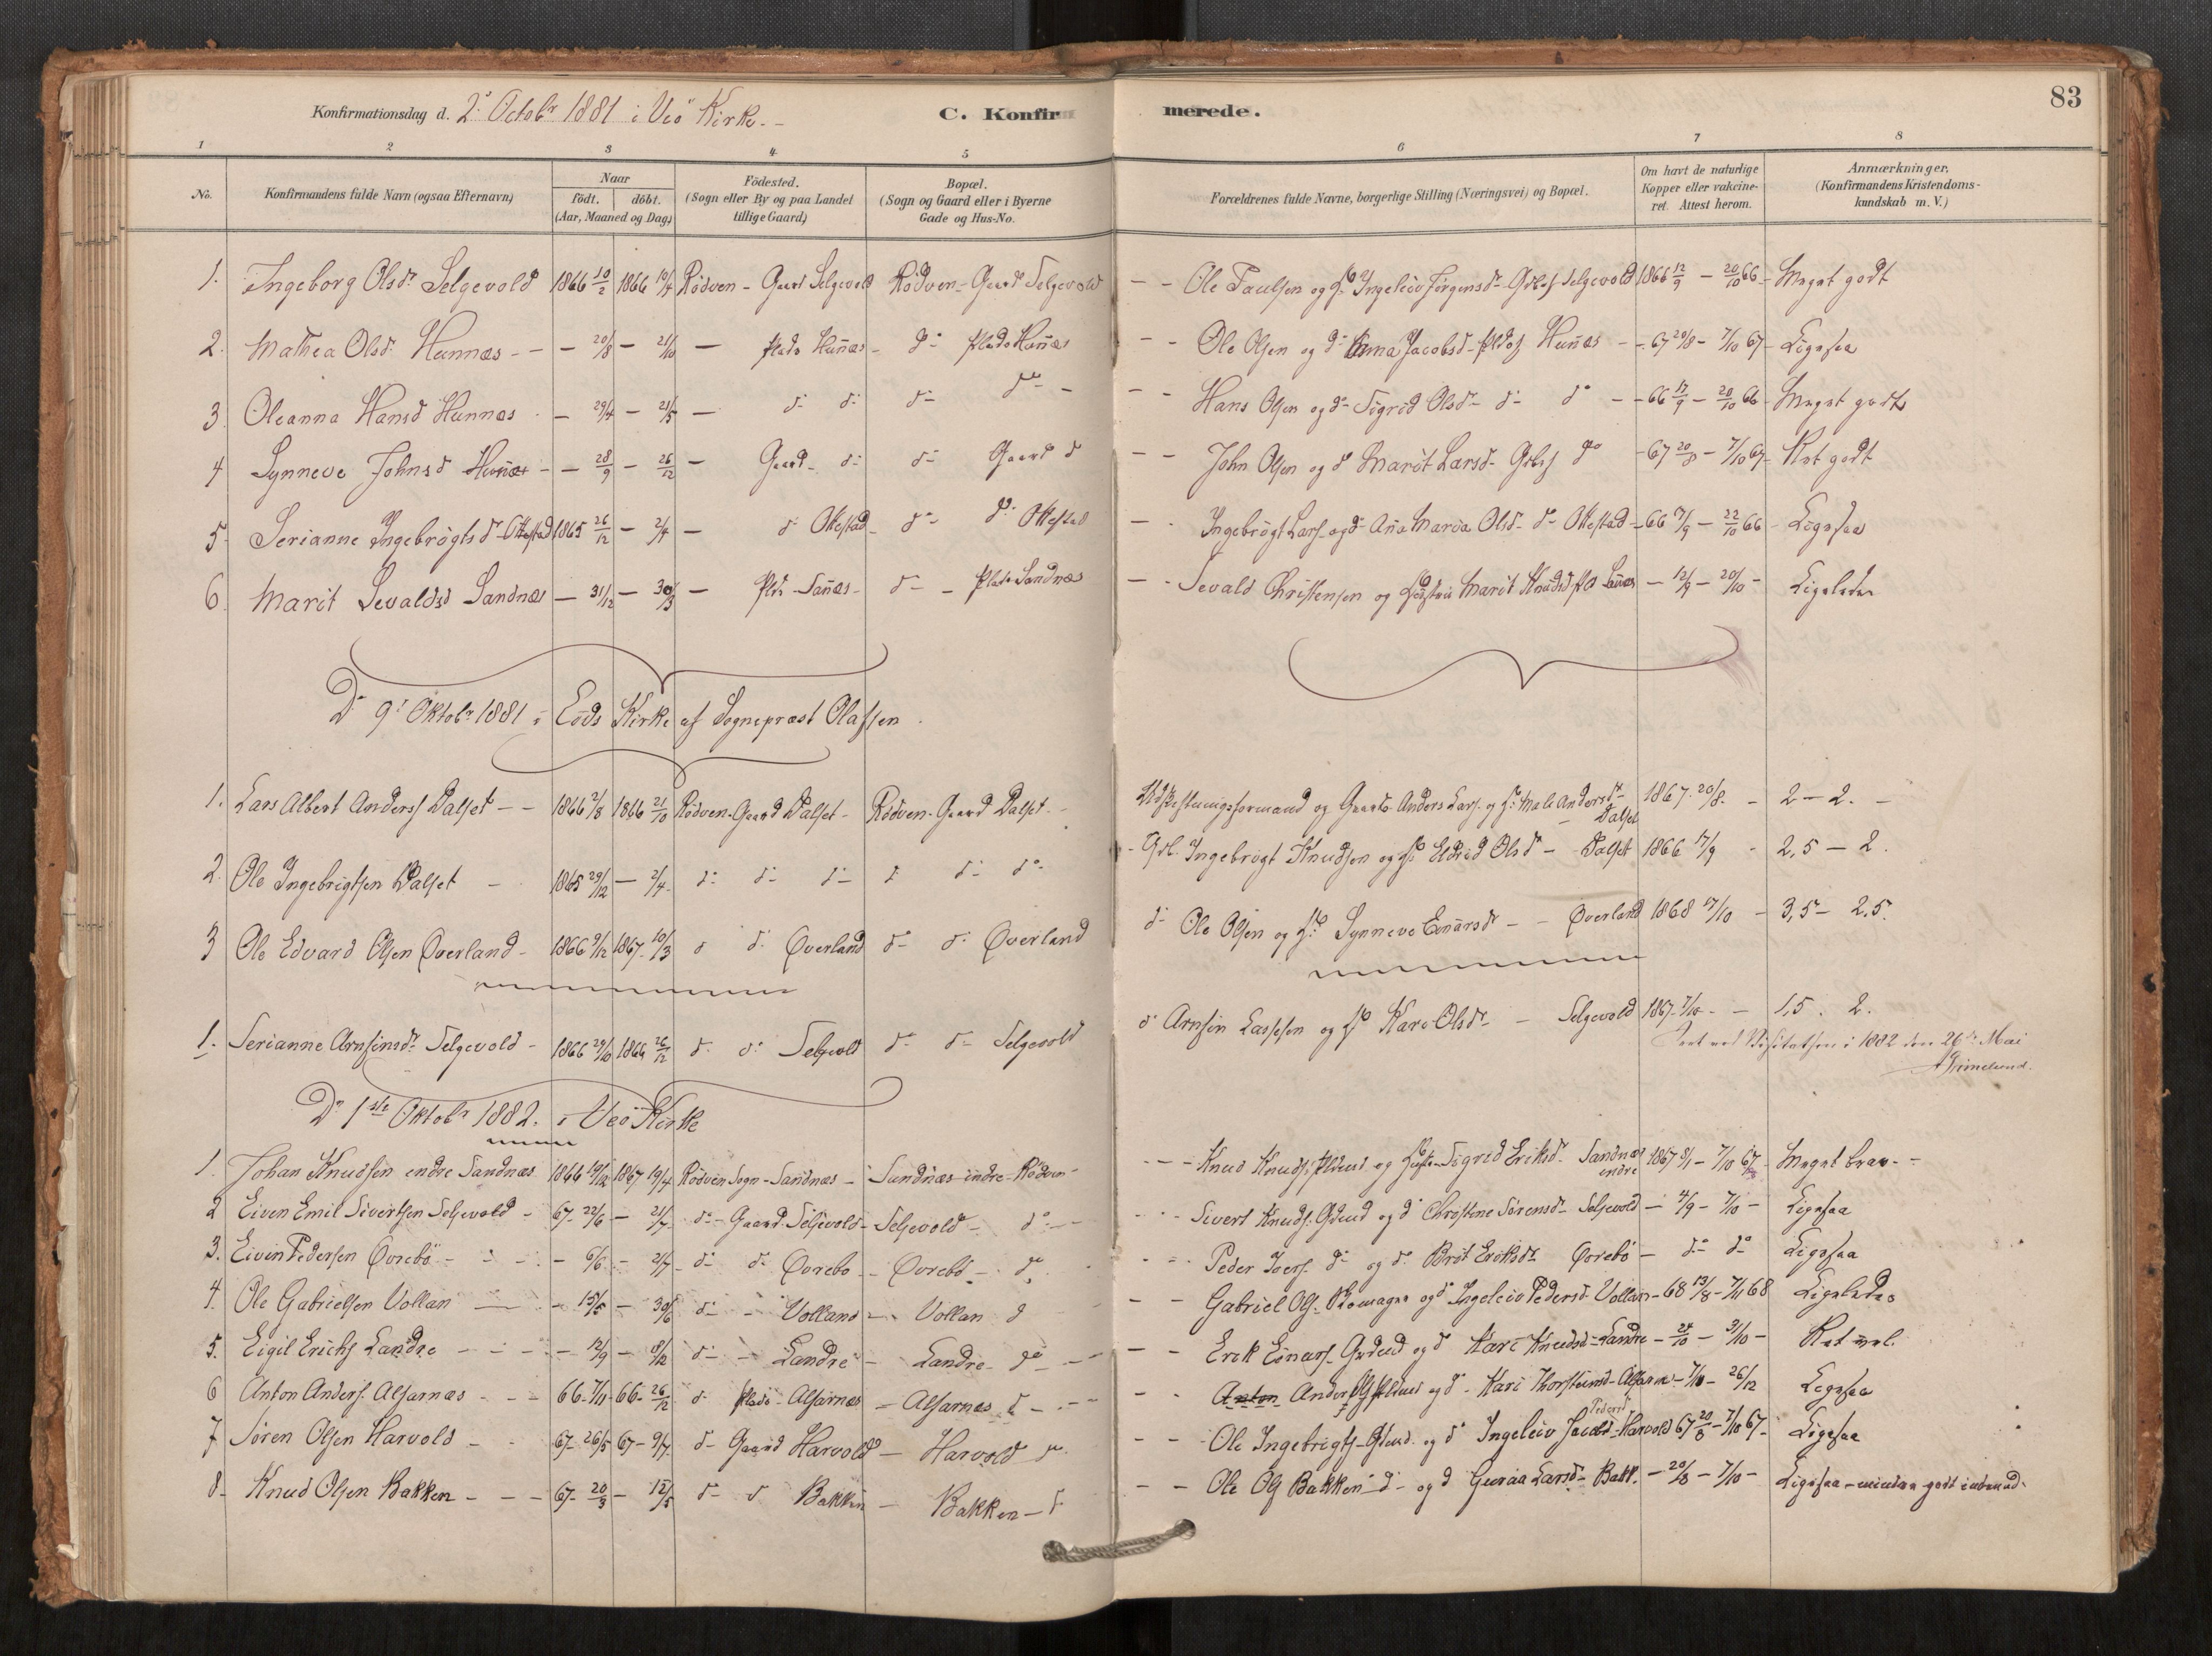 83
Konfirmationsdag d. 2den Octobr 1881 i Veö Kirke. C. Konfirmerede.
1 2 3 4 5 6 7 8
No. Konfirmandens fulde Navn (ogsaa Efternavn) Naar födt. döbt. (Aar, Maaned og Dag) Födested. (Sogn eller By og paa Landet tillige Gaard) Bopæl. (Sogn og Gaard eller i Byerne Gade og Hus-No. Forældrenes fulde Navne, borgerlige Stilling (Næringsvei) og Bopæl. Om havt de naturlige Kopper eller vakcineret. Attest herom. Anmærkninger, (Konfirmandens Kristendomskundskab m. V.)
1. Ingeborg Olsdr Selgevold 1866 10/2 1866 10/4 Rödven - Gaard Selgevold Rödven - Gaard Selgevold - - Ole Paulsen og Ingeleiv Jörgensdr Selgevold 1866 12/9 - 20/10 66 - Meget godt
2. Mathea Olsdr Hunnæs - - - 20/8 - 21/10 - Plads Hunæs - do Plads Hunæs - - Ole Olsen og do Anna Jacobsd - Hunæs - - 67 20/8 - 7/10 67 - Ligesaa
3. Oleanna Hansd Hunnæs - 29/4 - 21/5 - do do do do - - - Hans Olsen og do Sigrid Olsdr - do do - - 66 17/9 - 20/10 66 - Meget godt
4 Synneve Johnsd Hunæs - - 28/9 - 26/12 - Gaard - do do Gaard d - - John Olsen og do Marit Larsd - do - 67 20/8 - 7/10 67 - Ret godt
5. Serianne Ingebrigtsdr Ottestad 1865 26/12 - 2/4 - do Ottestad - do do Ottestad - - Ingebrigt Lars. og do Ana Maria Olsd - do Ottestad - 66 17/9 - 22/10 66 - Ligesaa
6. Marit Sevaldsd Sandnæs - 31/12 - 30/3 - Plds Sanæs - do - Plads Sandnæs - - Sevald Christensen og Marit Knudsd - 12/9 - 20/10 - Ligeledes
Dn 9de Oktobr 1881 i Eids Kirke af Sognepræst Olafsen.
1. Lars Albert Anders. Dalset - - 1866 2/8 1866 21/10 Rödven - Gaard Dalset - Rödven - Gaard Dalset - og Gaardb. Anders Lars. og Male Andersdr Dalset 1867 20/8 - 2 - 2. -
2. Ole Ingebrigtsen Dalset - 1865 29/12 - 2/4 - do do do d do do - Gdb. Ingebrigt Knudsen og Eldrid Olsdr - Dalset 1866 17/9 - 2,5 - 2.
3 Ole Edvard Olsen Överland - 1866 9/12 1867 - 10/3 d do Överland do do Överland do Ole Olsen og Synneve Einarsdr - - Överland 1868 17/10 - 3,5 - 2,5.
1. Serianne Arnfinsdr Selgevold - 1866 29/10 1866 26/12 do do Selgevold do do Selgevold d Arnfin Lassesen og Kari Olsdr - Selgevold 1867 7/10 - - 1,5. 2.
Seet ved Visitatsen i 1882 den 26de Mai
Grimelund.
Dn 1ste Oktobr 1882. i Veö Kirke
1. Johan Knudsen indre Sandnæs 1866 19/12 1867 19/4 Rödven Sogn - Sandnæs - Sandnæs indre - Rödven - - - Knud Knuds. og Sigrid Eriksdr Sandnæs indre 1867 - 7/10 67 - Meget brav - -
2 Eiven Emil Sivertsen Selgevold - 67 - 22/6 - 21/7 do - Gaard Selgevold - Selgevold - do - - - - Sivert Knuds. Gdmd og do Christene Sörensd - Selgevold - 4/9 - 7/10 - Ligesaa
3. Eivin Pedersen Övrebö - - - - 6/6 - 21/7 - do do Övrebö - Övrebö - do - - Peder Ivers. do og do Brit Eriksdr Övrebö - do do Ligesaa
4. Ole Gabrielsen Vollan - - 15/5 - 30/6 do - Volland - - Vollan d - - Gabriel Ols. og do Ingeleiv Pedersd - Vollan - 68 13/8 - 7/11 68 Ligeledes
5. Eigil Erichs. Landre - - - - 12/9 - 8/12 do - - Landre - Landre - do - - - - Erik Einars. Gdmd og do Kari Knudsd - Landre - 24/10 - 31/10 - Ret vel.
6 Anton Anders. Alfarnæs - - - 66 - 7/11 - 66 - 26/12 d Plads - Alfarnæs - Alfarnæs d - - - - - Anton Anders Ols. Pldmd og do Kari Thorsteinsd - Alfarnæs - 7/10 - 26/12 Ligesaa
7 Sören Olsen Harvold - - 67 - 26/5 67 - 9/7 do - Gaard Harvold - Harvold do - - Ole Ingebrigts. Gdmd og do Ingeleiv Jacobsd Pedersd - Harvold 67 20/8 - 7/10 67 - Ligesaa
8 - Knud Olsen Bakken - - - 67 - 20/3 - 12/5 do - d Bakken - Bakken - do - - Ole Ols. Bakken d - og d Guraa Larsd - Bakk. - 20/8 - 7/10 - Ligesaa - mindre godt